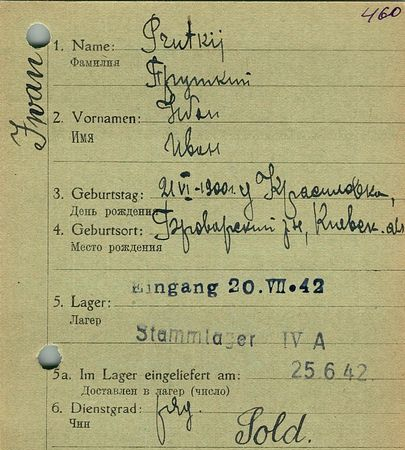 460
Iwan
1. Name: Prutkij
Фамилия
Пруткий
2. Vornamen: Iwan
Имя Иван
3. Geburtstag: 21 VI-1900 г. Красиловка,
День рождения
4. Geburtsort: Броварский р-н, Киевск. обл
Место рождения
Eingang 20. VII. 42
5. Lager:
Лагер
Stammlager IV A
25 6 42.
5a. Im Lager eingeliefert am:
Доставлен в лагер (число)
6. Dienstgrad: ряд.
Чин
Sold.